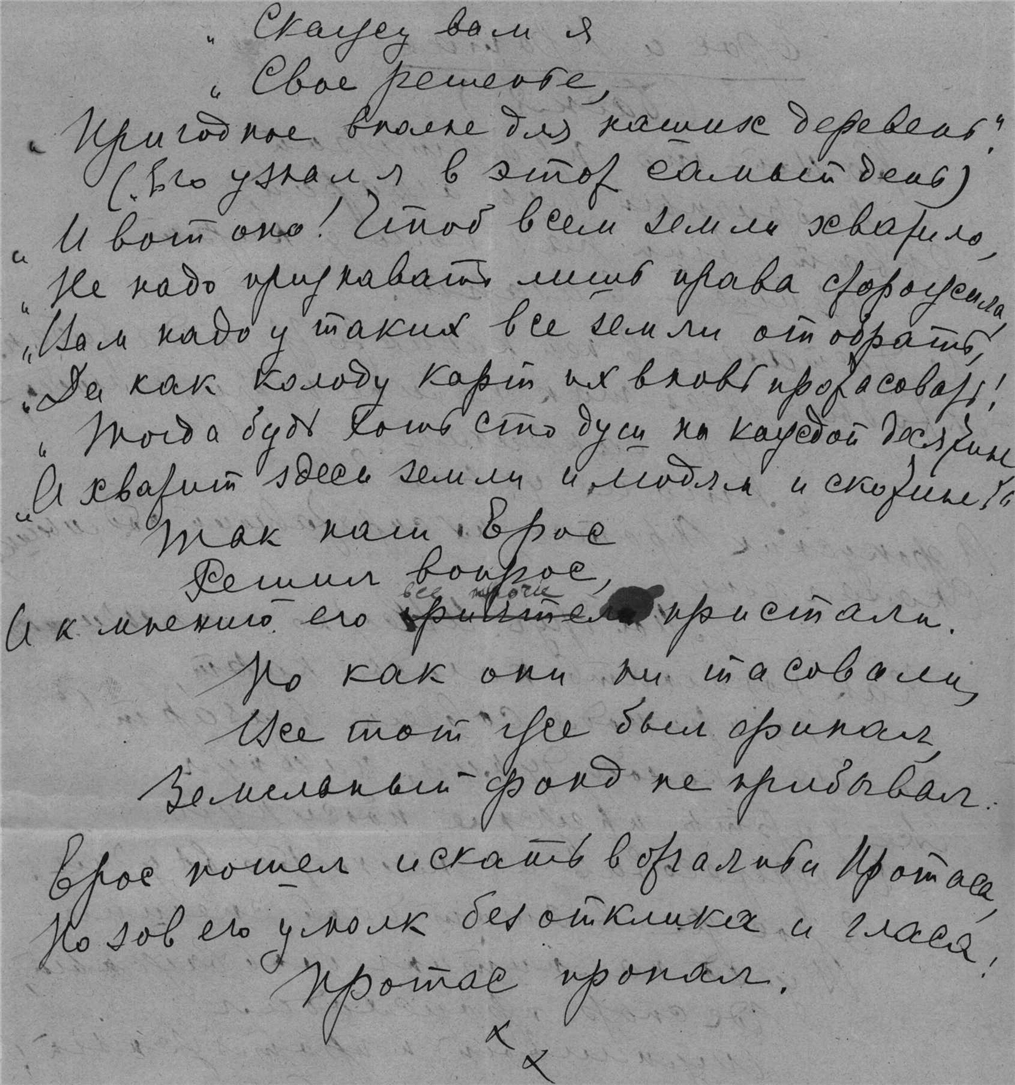 „ Скажу вам я
„ Свое решенье,
„ Пригодное вполне для наших деревень“.
(Его узнал я в этот самый день)
„ И вот оно! Чтоб всем земли хватило,
„ Не надо признавать лишь права сторожила,
„ Нам надо у таких все земли отобрать,
„ Да как колоду карт их вновь протасовать!
„ Тогда будь хоть сто душ на каждой десятине
„ А хватит здесь земли и людям и скотине“.
Так наш Ерос
Решил вопрос,
все прочие
И к мнению его пристали.
Но как они ни тасовали,
Все тот же был финал,
Земельный фонд не прибывал.
Ерос пошел искать в отчаяньи Протаса,
Но зов его умолк без отклика и гласа!
Протас пропал.